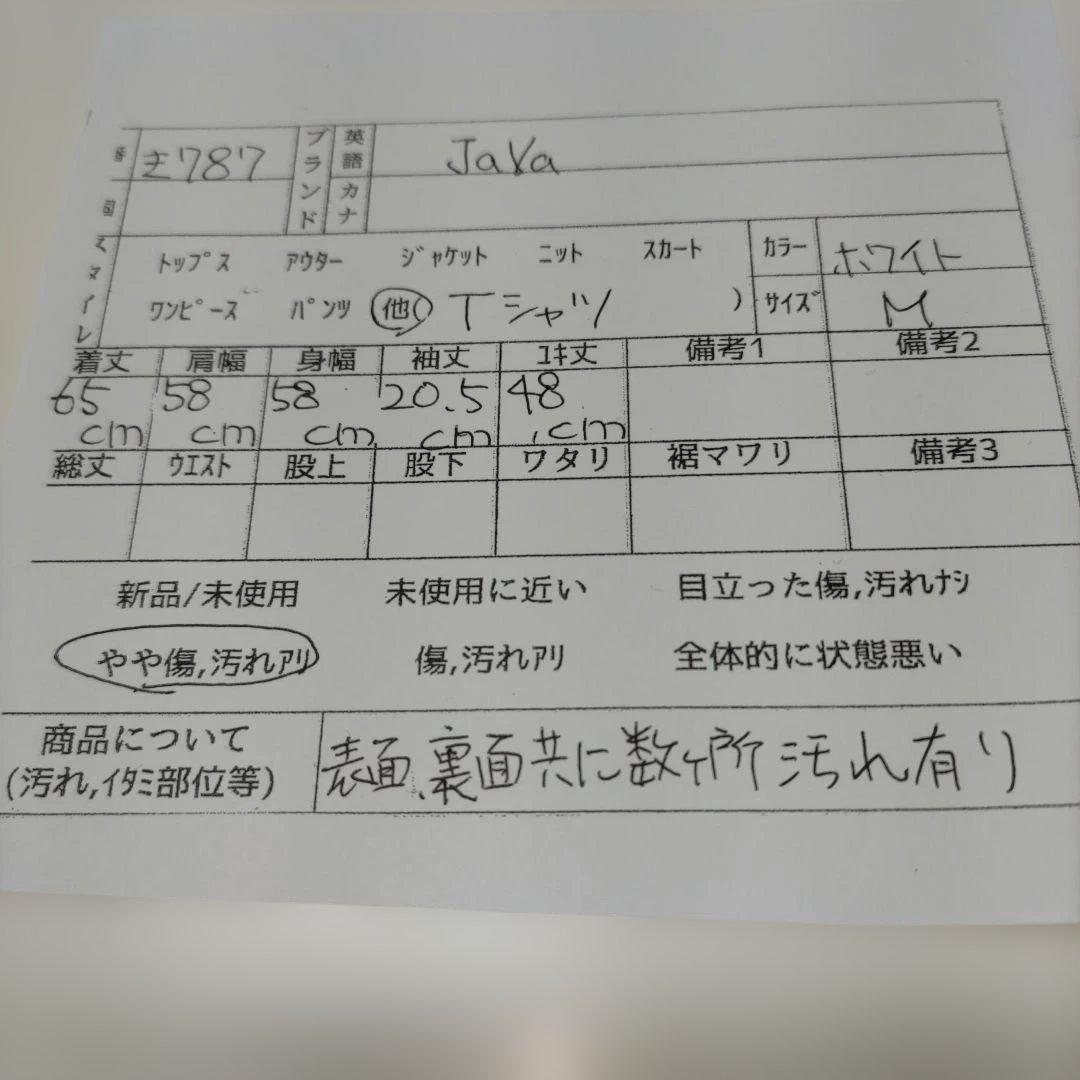 番 モ787 ブランド 英語 JaVa
カナ
スタイル トップス アウター ジャケット ニット スカート カラー ホワイト
ワンピース パンツ 他( Tシャツ ) サイズ M
着丈 肩幅 身幅 袖丈 ユキ丈 備考1 備考2
65cm 58cm 58cm 20.5cm 48cm
総丈 ウエスト 股上 股下 ワタリ 裾マワリ 備考3
新品/未使用 未使用に近い 目立った傷,汚れナシ
やや傷,汚れアリ 傷,汚れアリ 全体的に状態悪い
商品について
(汚れ,イタミ部位等) 表面、裏面共に数ヶ所汚れ有り